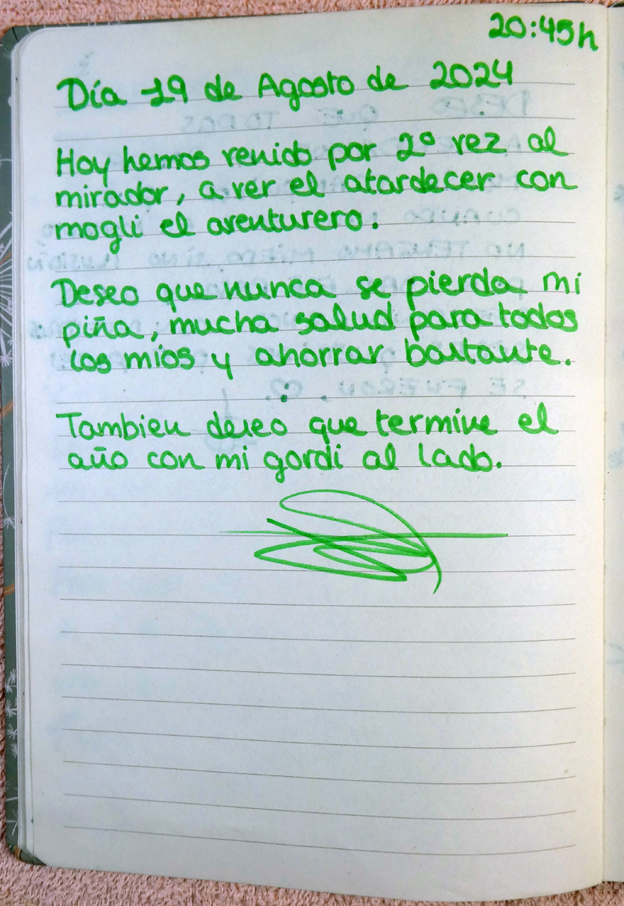 20:45h
Día 19 de Agosto de 2024
Hoy hemos venido por 2º vez al
mirador, a ver el atardecer con
mogli el aventurero.
Deseo que nunca se pierda mi
piña, mucha salud para todos
los míos y ahorrar bastante.
Tambien deseo que termine el
año con mi gordi al lado.